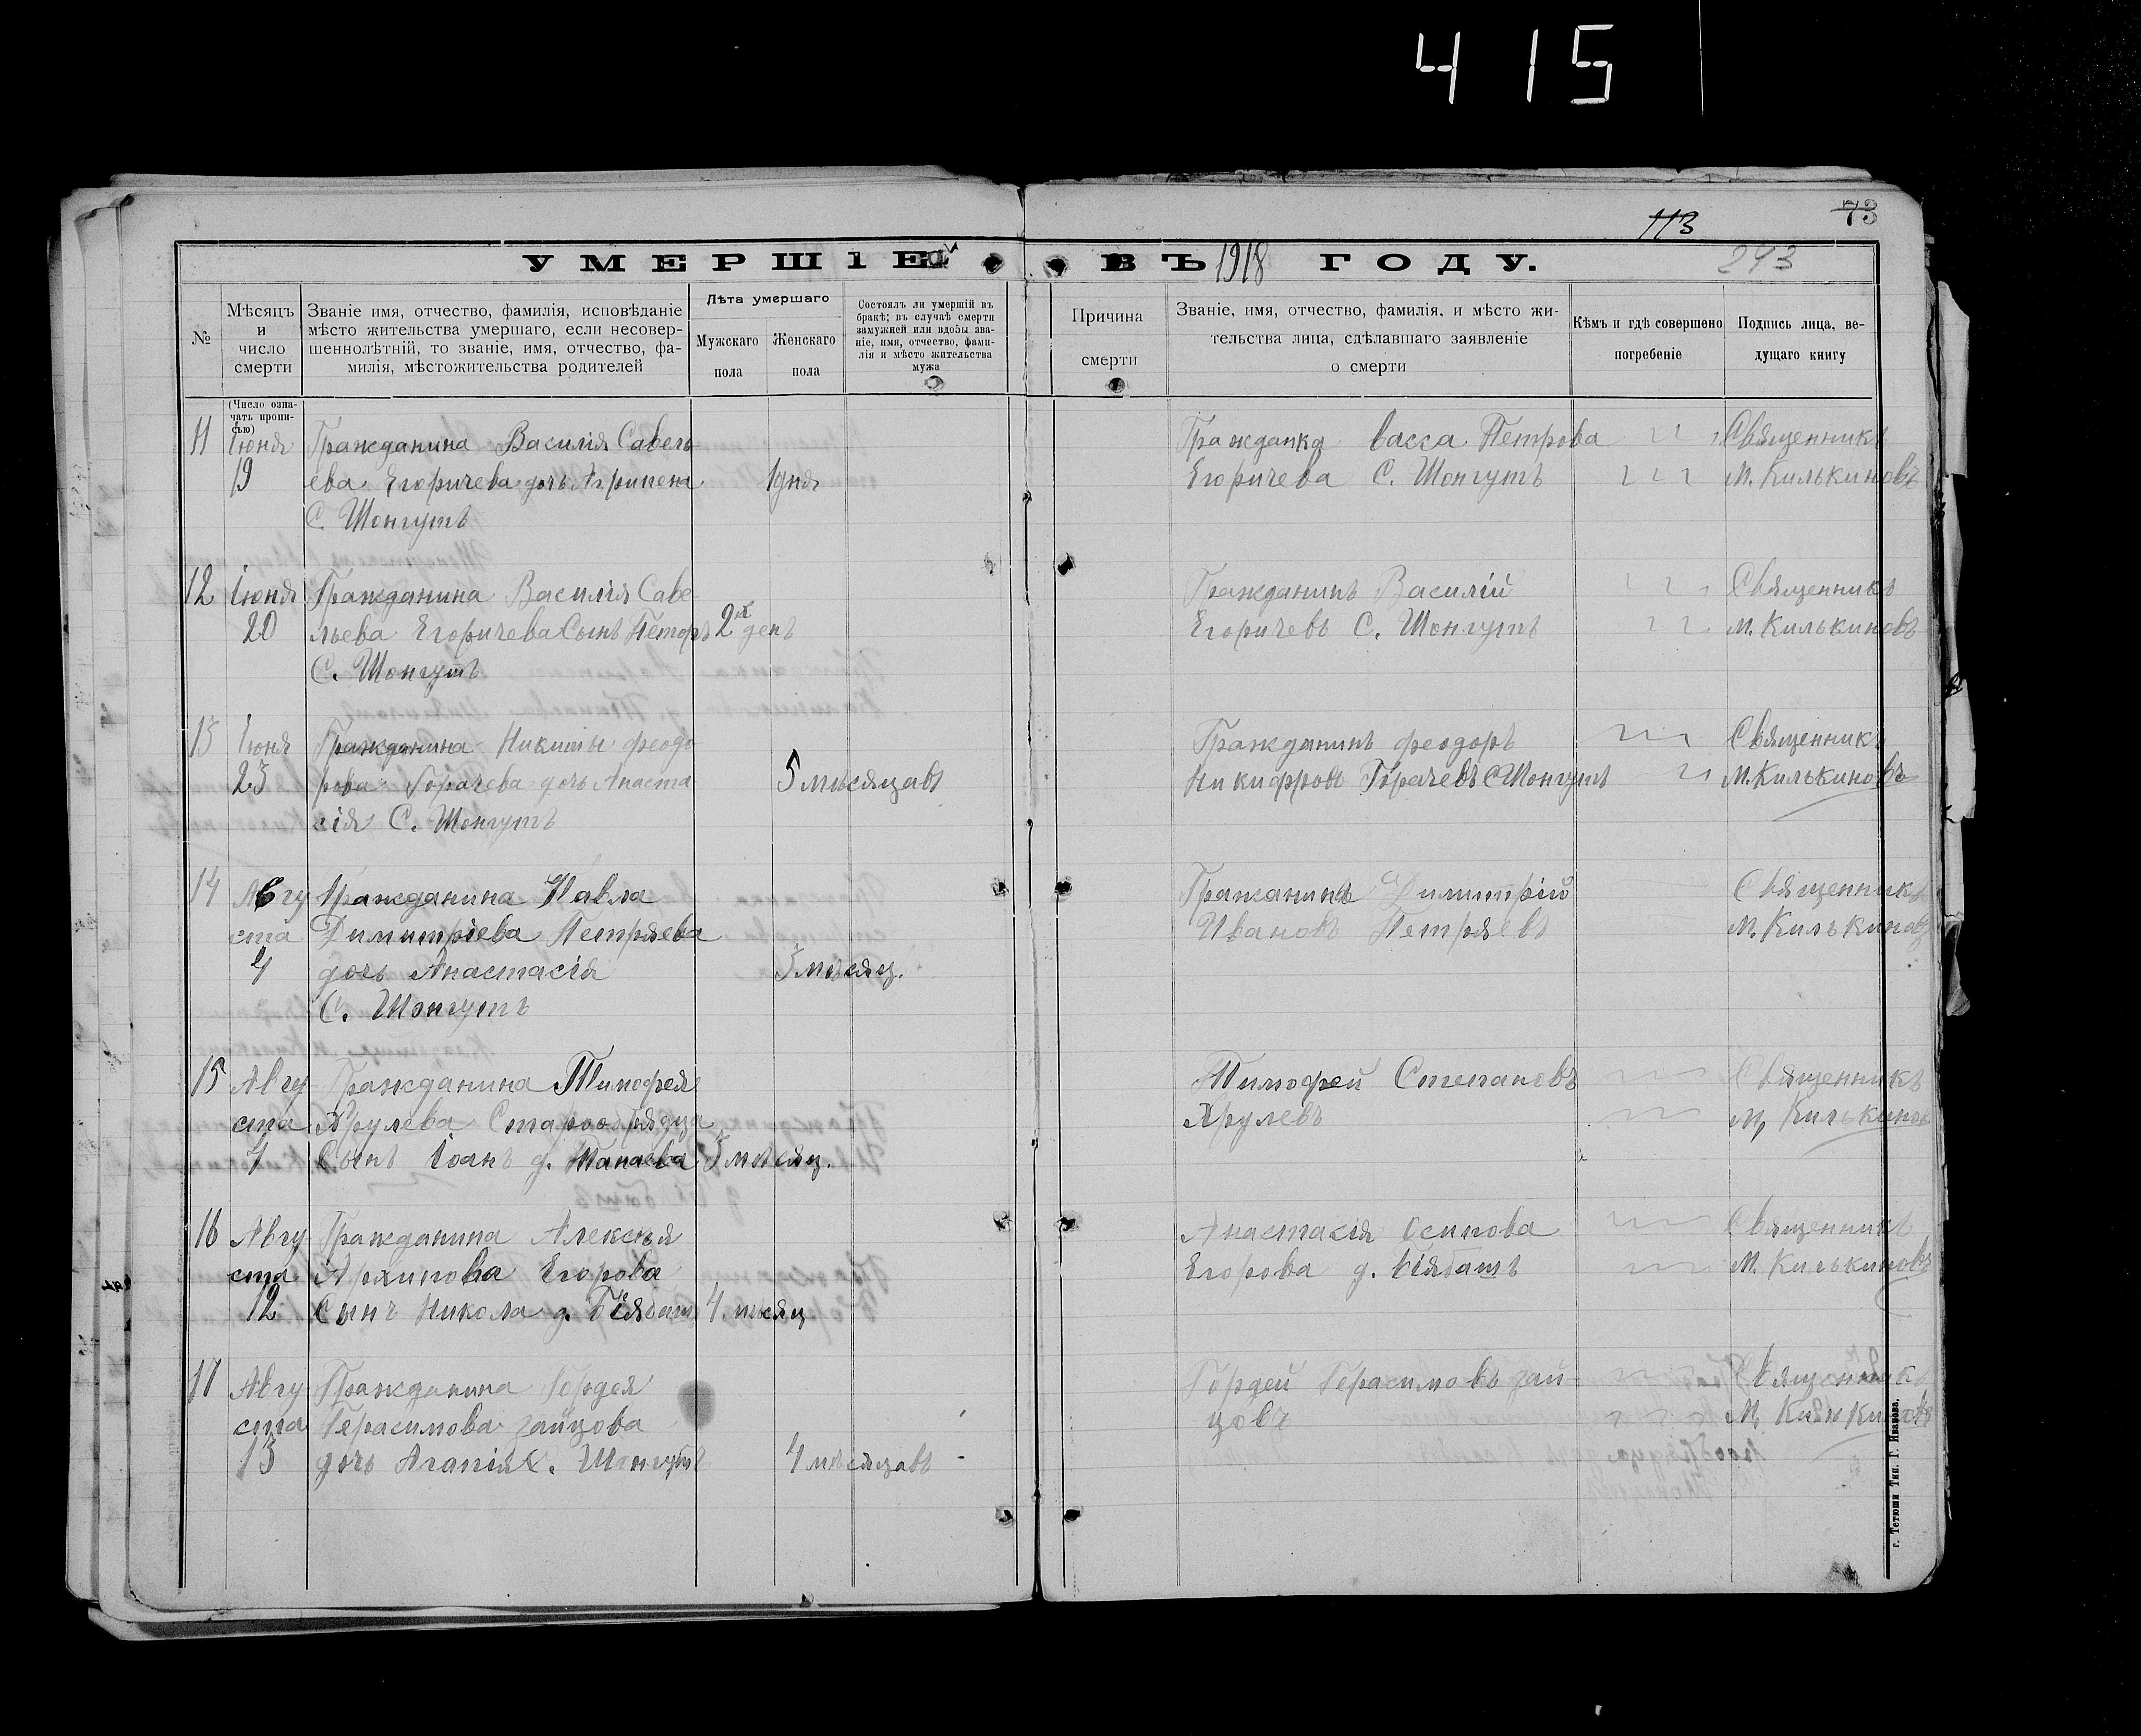 415
113
73
УМЕРШІЕ ВЪ 1918 ГОДУ.
243
№
Мѣсяцъ и число смерти
Званіе имя, отчество, фамилія, исповѣданіе
мѣсто жительства умершаго, если несовер-
шеннолѣтній, то званіе, имя, отчество, фа-
милія, мѣстожительства родителей
Лѣта умершаго
Мужскаго пола
Женскаго пола
Состоялъ ли умершій въ
бракѣ; въ случаѣ смерти
замужней или вдовы зва-
ніе, имя, отчество, фами-
лія и мѣсто жительства
мужа
Причина смерти
Званіе, имя, отчество, фамилія, и мѣсто жи-
тельства лица, сдѣлавшаго заявленіе
о смерти
Кѣмъ и гдѣ совершено
погребеніе
Подпись лица, ве-
дущаго книгу
(Число озна-
чать пропи-
сью)
11 Іюня Гражданина Василія Савель Гражданка Васса Петрова Священникъ
19 ева Егоричева дочь Агрипена 1 дня Егоричева С. Шонгутъ М. Килькиновъ
С. Шонгутъ
12 Іюня Гражданина Василія Саве Гражданинъ Василій Священникъ
20 льева Егоричева Сынъ Петоръ 2х денъ Егоричевъ С. Шонгутъ М. Килькиновъ
С. Шонгутъ
13 Іюня Гражданина Никиты Феодо Гражданинъ Феодоръ Священникъ
23 рова Горачева дочь Анаста 5 мѣсяцавъ Никифровъ Горачевъ С Шонгутъ М. Килькиновъ
сія С. Шонгутъ
14 Авгу Гражданина Павла Гражанинъ Димитрій Священникъ
ста Димитріева Петряева Ивановъ Петряевъ М. Килькиновъ
4 дочь Анастасія 3 мѣсяц.
С. Шонгутъ
15 Авгу Гражданина Тимофея Тимофей Степановъ Священникъ
ста Хрулева Старообрядца Хрулевъ М. Килькиновъ
7 Сынъ Іоанъ д. Танаева 5 мѣсяц.
16 Авгу Гражданина Алексѣя Анастасія Осипова Священникъ
ста Архипова Егорова Егорова д. Біябашъ М. Килькиновъ
12 Сынъ Никола д. Біябаш 4. мѣсяц
17 Авгу Гражданина Гордея Гордей Герасимовъ Зай Священникъ
ста Герасимова Зайцова цовъ М. Килькиновъ
13 дочь Агапія С. Шонгутъ 4 мѣсяцавъ
г. Тетюши Тип. Г. Иванова.